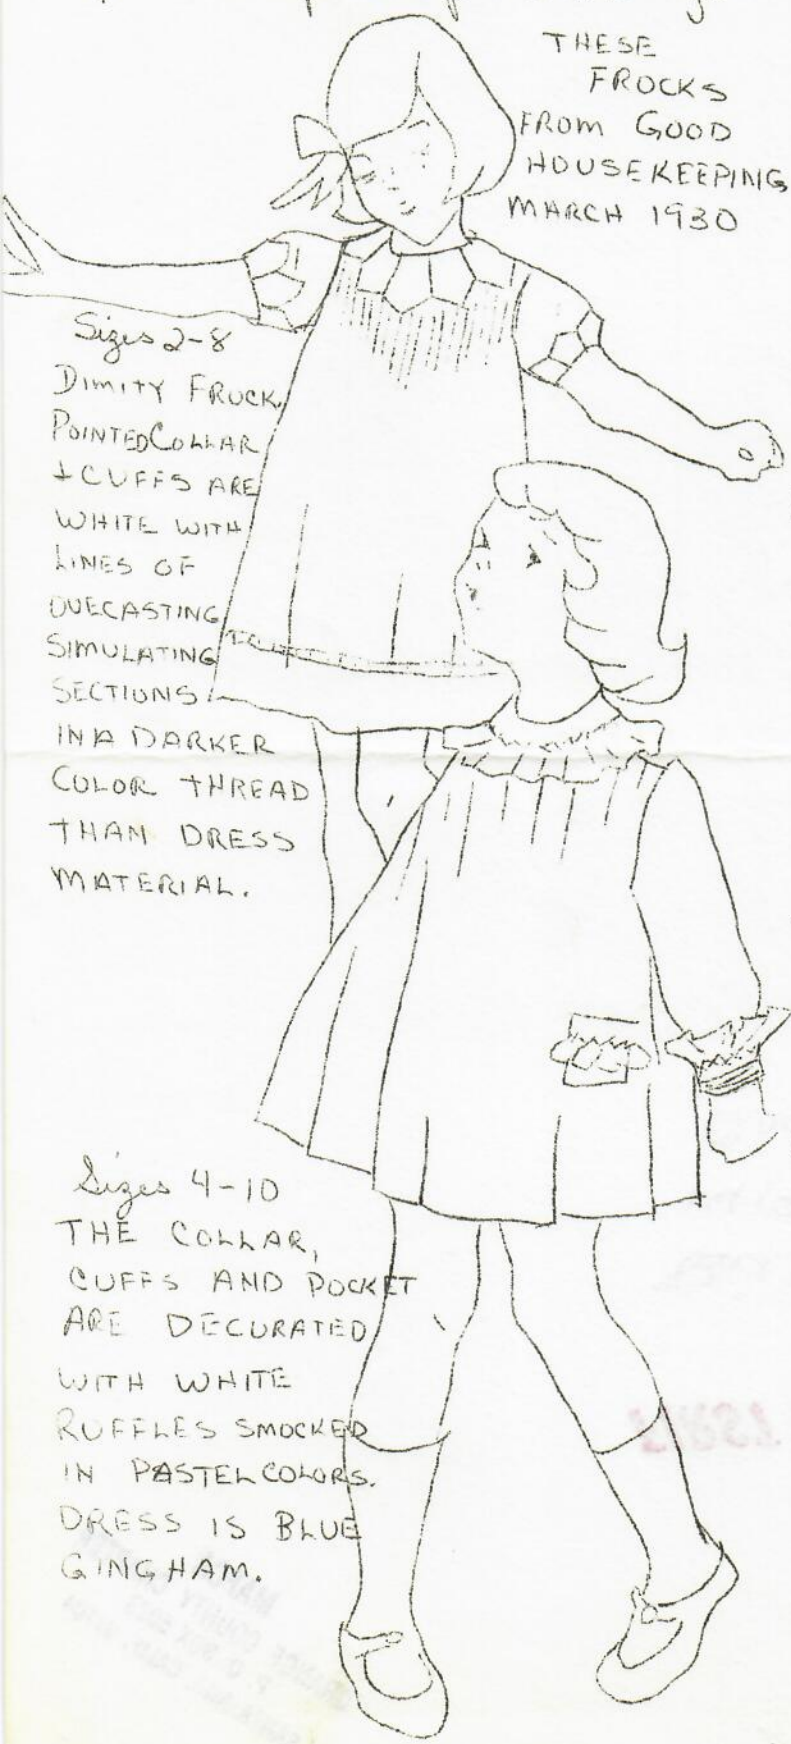 THESE
FROCKS
FROM GOOD
HOUSEKEEPING
MARCH 1930
Sizes 2-8
DIMITY FROCK.
POINTED COLLAR
+ CUFFS ARE
WHITE WITH
LINES OF
OVECASTING
SIMULATING
SECTIONS
IN A DARKER
COLOR THREAD
THAN DRESS
MATERIAL.
Sizes 4-10
THE COLLAR,
CUFFS AND POCKET
ARE DECORATED
WITH WHITE
RUFFLES SMOCKED
IN PASTEL COLORS.
DRESS IS BLUE
GINGHAM.